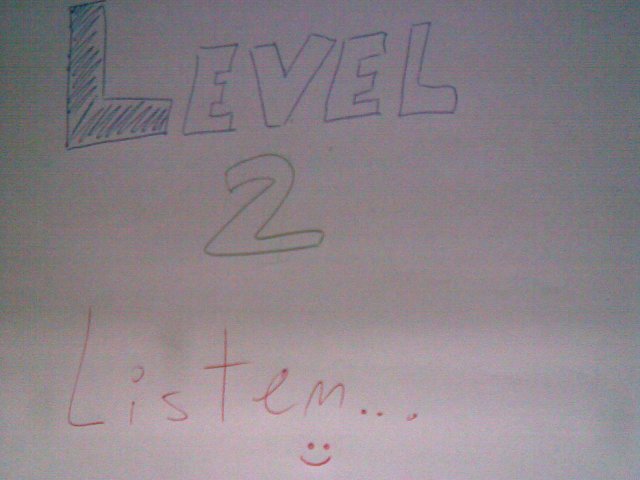 LEVEL
2
Listen...